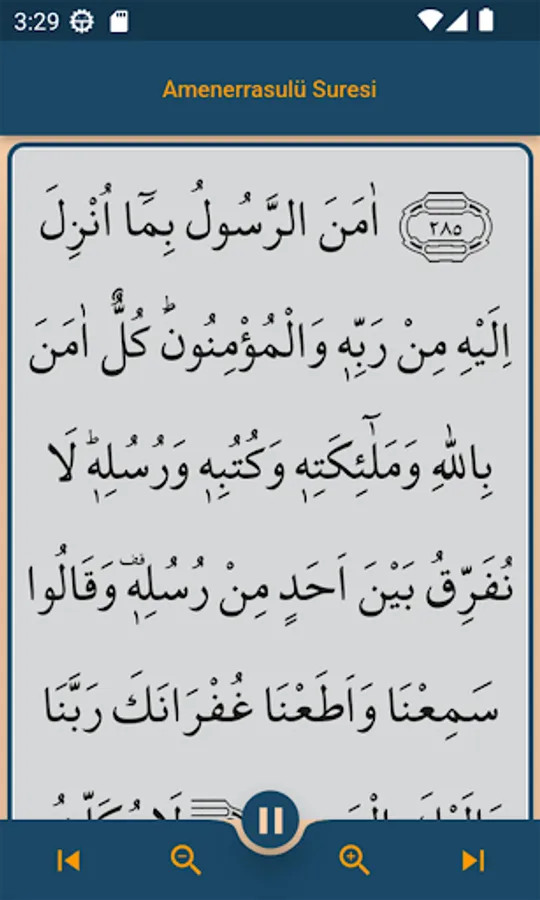 3:29
Amenerrasulü Suresi
﴿٢٨٥﴾ اٰمَنَ الرَّسُولُ بِمَٓا اُنْزِلَ
اِلَيْهِ مِنْ رَبِّه۪ وَالْمُؤْمِنُونَۜ كُلٌّ اٰمَنَ
بِاللّٰهِ وَمَلٰٓئِكَتِه۪ وَكُتُبِه۪ وَرُسُلِه۪ۜ لَا
نُفَرِّقُ بَيْنَ اَحَدٍ مِنْ رُسُلِه۪ۚ وَقَالُوا
سَمِعْنَا وَاَطَعْنَا غُفْرَانَكَ رَبَّنَا